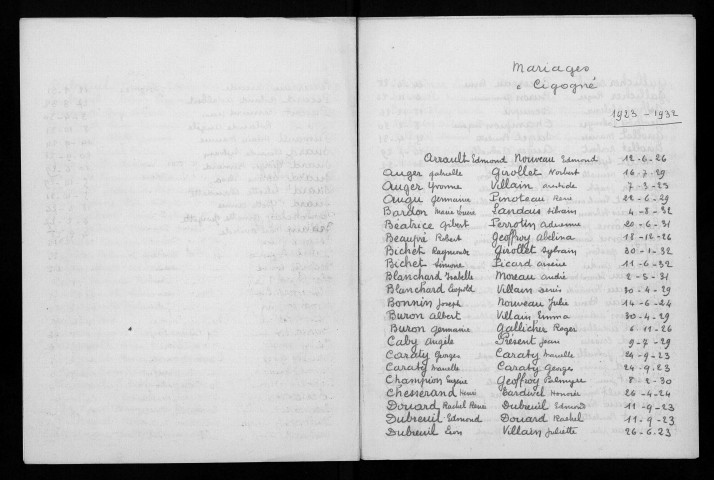 Mariages
à Cigogné
1923 - 1932
Arrault Edmond Nouveau Edmond 12-6-26
Auger Gabrielle Girollet Norbert 16-7-29
Auger Yvonne Villain Aristide 7-3-25
Augu Germaine Pinoteau René 22-6-29
Bardon Marie Louise Landais Silvain 4-8-32
Béatrice Gilbert Perrotin Adrienne 20-6-31
Beaupré Robert Geoffroy Abelina 18-12-26
Bichet Raymonde Girollet Sylvain 30-1-32
Bichet Simone Picard 11-6-32
Blanchard Isabelle Moreau André 2-5-31
Blanchard Léopold Villain 30-4-29
Bonnin Joseph Nouveau Julie 14-6-24
Buron Albert Villain Emma 30-4-29
Buron Germaine Gallicher Roger 6-11-26
Caby Angèle Présent Jean 9-7-29
Caraty Georges Caraty Marcelle 24-9-23
Caraty Marcelle Caraty Georges 24-9-23
Champion Eugène Geoffroy Palmyre 8-2-30
Chesserand Henri Tardivel Honorée 26-4-24
Douard Rachel Renée Dubreuil Edmond 11-9-23
Dubreuil Edmond Douard Rachel 11-9-23
Dubreuil Léon Villain Juliette 26-6-23